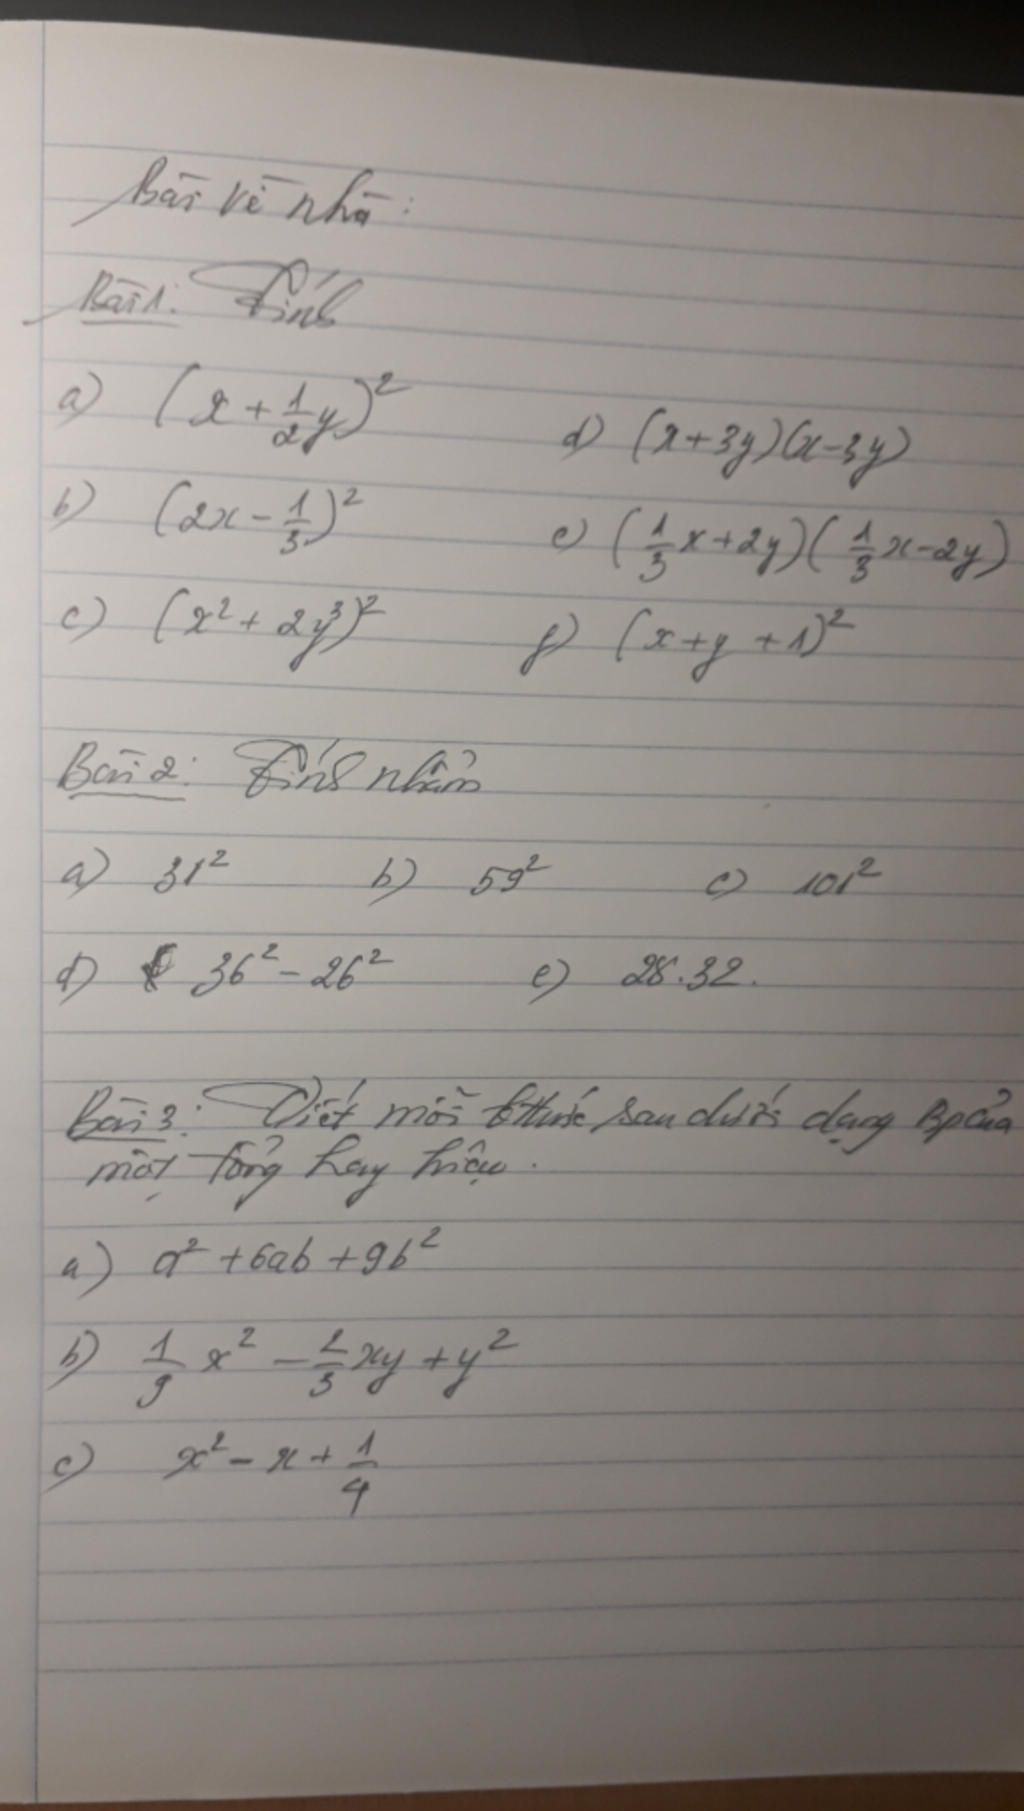 Bài về nhà:
Bài 1: Tính
a) (x + 1/2 y)²
d) (x + 3y)(x - 3y)
b) (2x - 1/3)²
e) (1/3 x + 2y)(1/3 x - 2y)
c) (x² + 2y³)²
f) (x + y + 1)²
Bài 2: Tính nhẩm
a) 31² b) 59² c) 101²
d) 36² - 26² e) 28.32.
Bài 3: Viết mỗi bthức sau dưới dạng Bp của
một tổng hay hiệu.
a) a² + 6ab + 9b²
b) 1/9 x² - 2/3 xy + y²
c) x² - x + 1/4